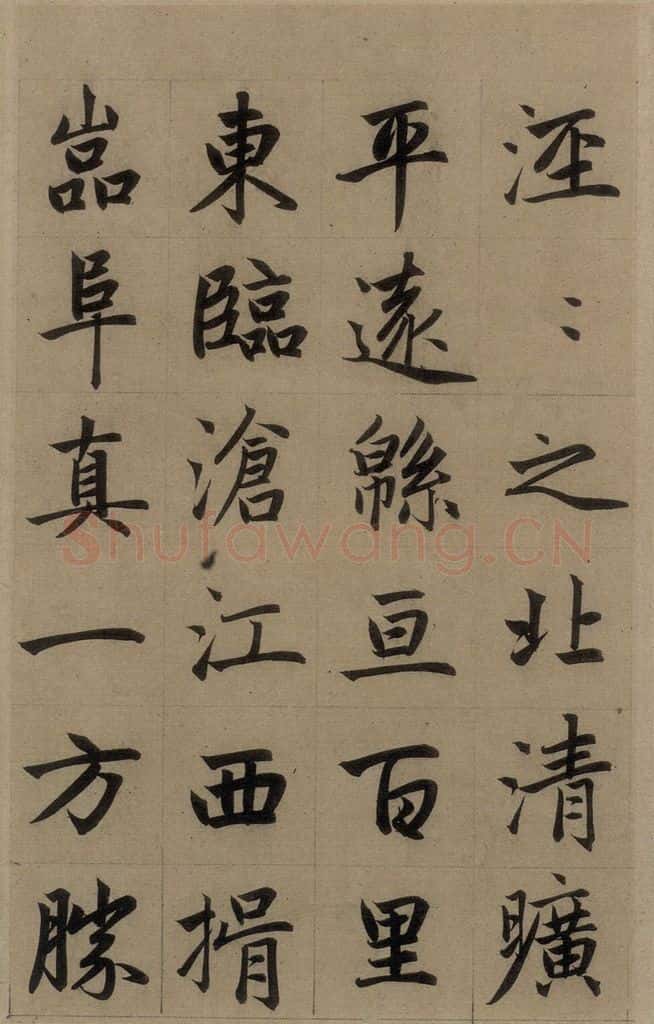 涇〻之北清曠
平遠緜亘百里
東臨滄江西揖
嵓阜真一方勝
Shufawang.CN